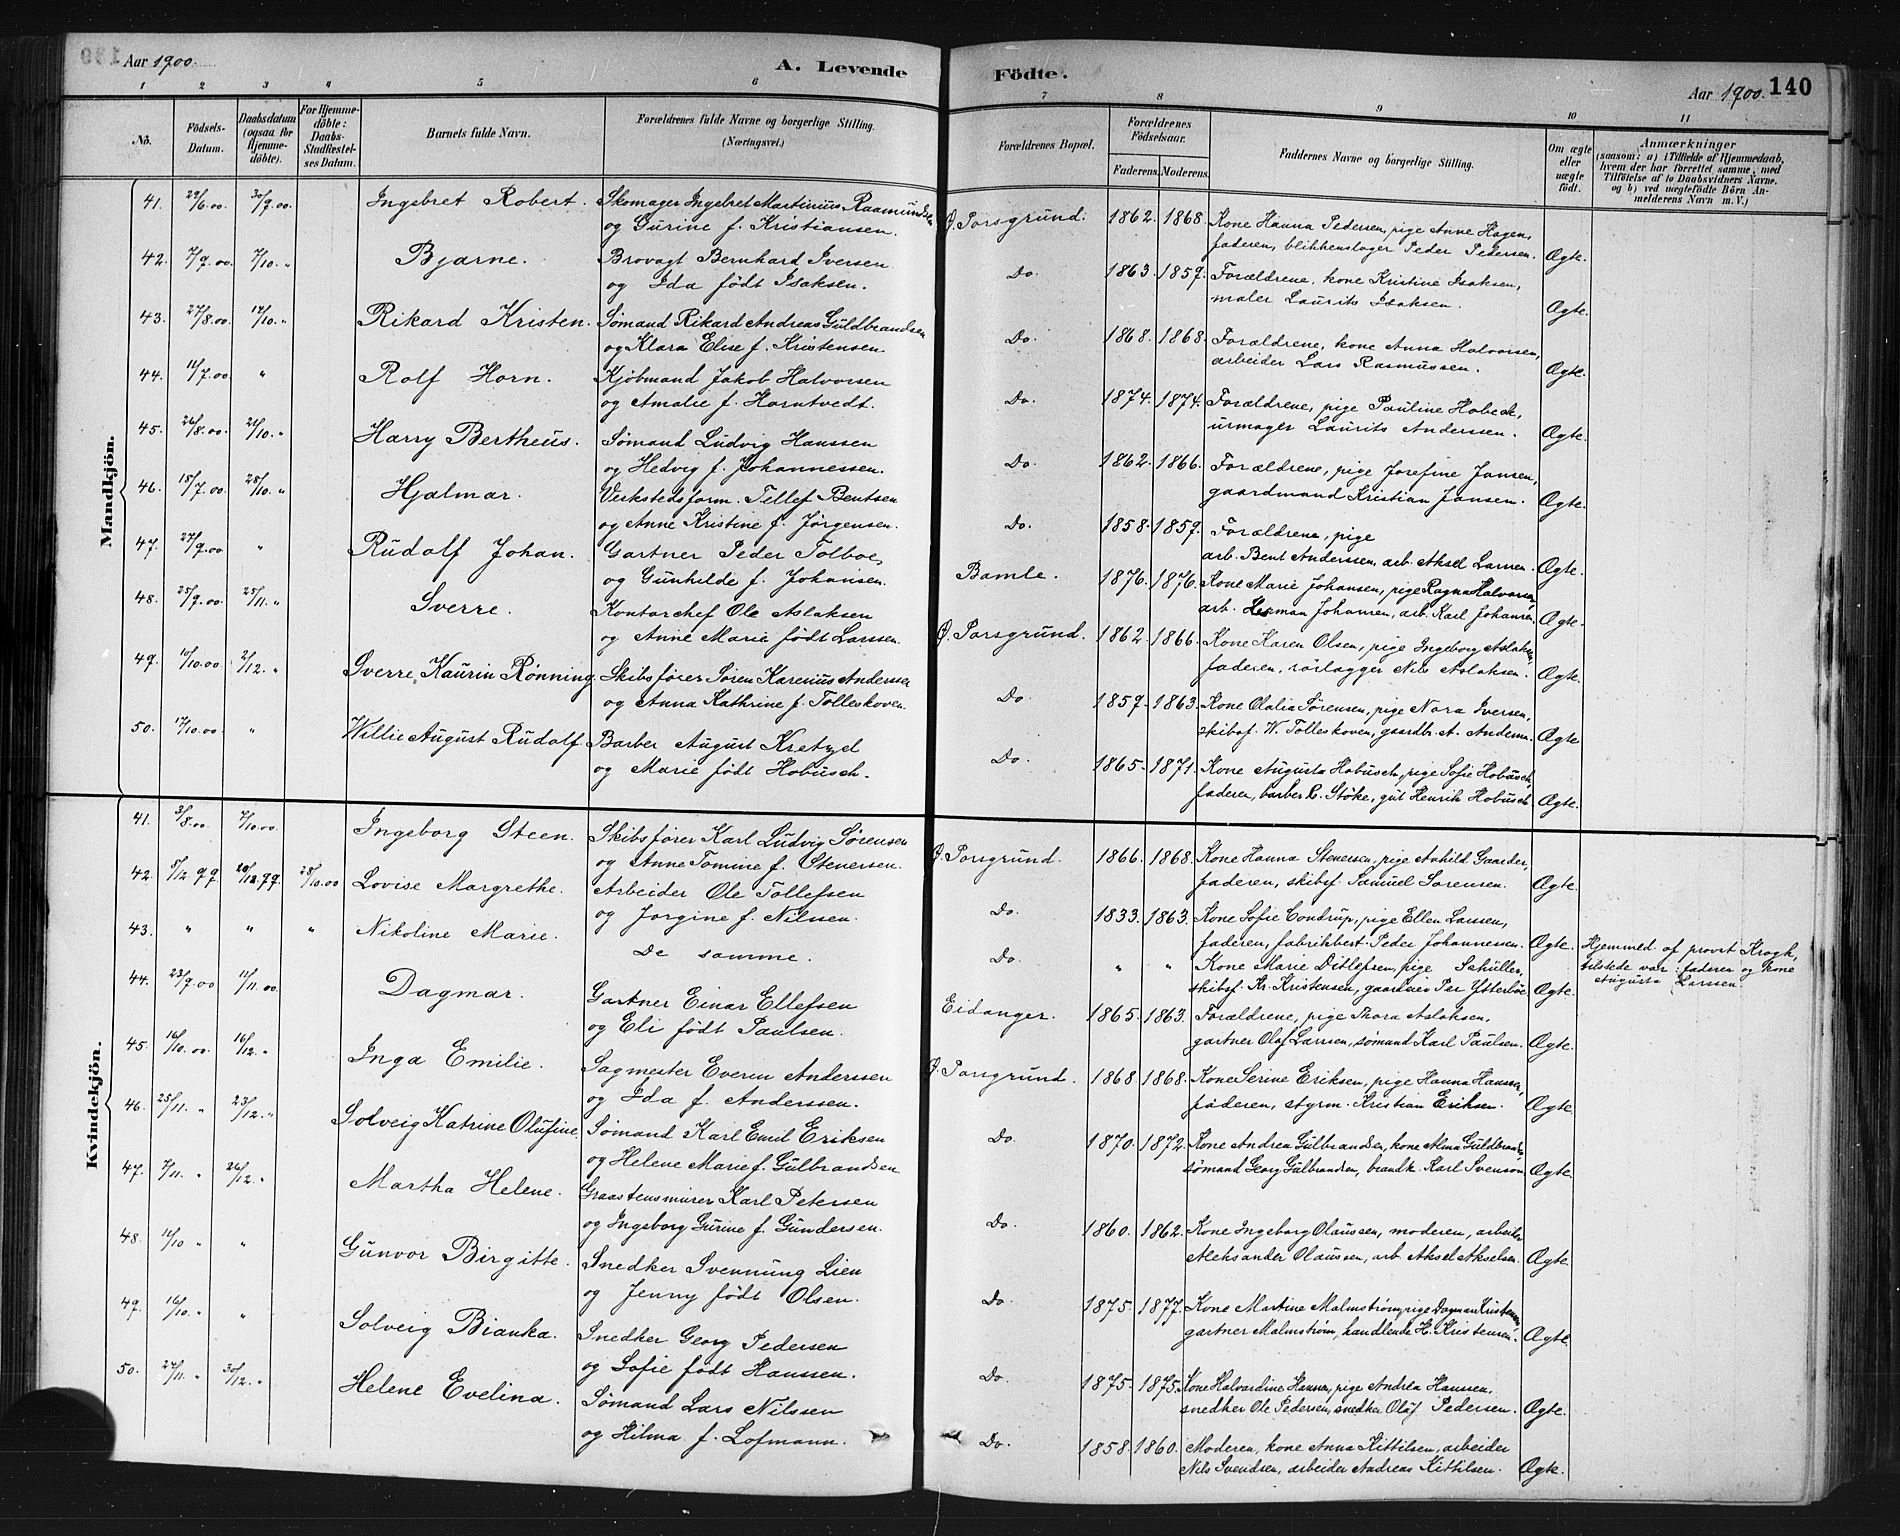 Aar 1900.
A. Levende
Födte.
Aar 1900. 140
1 2 3 4 5 6 7 8 9 10 11
No.
Födsels-Datum.
Daabsdatum (ogsaa for Hjemme-döbte).
For Hjemme-döbte: Daabs-Stadfæstelses Datum.
Barnets fulde Navn.
Forældrenes fulde Navne og borgerlige Stilling.
(Næringsvei.)
Forældrenes Bopæl.
Forældrenes Födselsaar.
Faderens. Moderens.
Faddernes Navne og borgerlige Stilling.
Om ægte eller uægte födt.
Anmærkninger
(saasom: a) i Tilfælde af Hjemmedaab, hvem der har forrettet samme, med Tilföielse af to Daabsvidners Navne, og b) ved uægtefödte Börn Anmelderens Navn m. V.)
Mandkjön.
41. 29/6.00 30/9.00 Ingebret Robert. Skomager Ingebret Martinius Raamundsen
og Gurine f. Kristiansen.
Ø. Porsgrund. 1862. 1868. Kone Hanna Pedersen, pige Anne Hagen,
faderen, blikkenslager Peder Pedersen. Ægte.
42. 7/9.00 7/10. „ Bjarne. Brovagt Bernhard Iversen
og Ida født Isaksen.
Do. 1863. 1859. Forældrene, kone Kristine Isaksen,
maler Laurits Isaksen. Ægte.
43. 27/8.00 14/10. „ Rikard Kristen. Sømand Rikard Andreas Guldbrandsen
og Klara Elise f. Kristensen.
Do. 1868. 1868. Forældrene, kone Anna Halvorsen,
arbeider Lars Rasmussen. Ægte.
44. 11/7.00 „ Rolf Horn. Kjöbmand Jakob Halvorsen
og Amalie f. Horntvedt.
Do. 1874. 1874. Forældrene, pige Pauline Hobæk,
urmager Laurits Anderssen. Ægte.
45. 26/8.00 21/10. „ Harry Bertheus. Sømand Ludvig Hanssen
og Hedvig f. Johannessen.
Do. 1862. 1866. Forældrene, pige Josefine Jansen,
gaardmand Kristian Jansen. Ægte.
46. 15/7.00 28/10. „ Hjalmar. Verkstedsform. Tellef Bentsen
og Anne Kristine f. Jörgensen.
Do. 1858. 1859. Forældrene, pige
arb. Bent Anderssen, arb. Aksel Larsen. Ægte.
47. 27/9.00 „ Rudolf Johan. Gartner Peder Tolboe,
og Gunhilde f. Johansen.
Bamle. 1876. 1876. Kone Marie Johansen, pige Ragna Halvorsen,
arb. Herman Johansen, arb. Karl Johansen. Ægte.
48. 25/9.00 25/11. „ Sverre. Kontorchef Ole Aslaksen
og Anne Marie født Larssen.
Ø. Porsgrund. 1862. 1866. Kone Karen Olsen, pige Ingeborg Aslaksen,
faderen, rørlægger Nils Aslaksen. Ægte.
49. 10/10.00 2/12. „ Sverre Kaurin Rønning. Skibsfører Søren Karenius Anderssen
og Anna Kathrine f. Tolleskoven.
Do 1859. 1863. Kone Olalia Sørensen, pige Nora Iversen,
skibsf. W. Tolleskoven, gaardbr. A. Andersen. Ægte
50. 17/10.00 „ Willie August Rudolf. Barber August Kretzel
og Marie født Hobusch.
Do. 1865. 1871. Kone Augusta Hobusch, pige Sofie Hobusch,
faderen, barber R. Stöke, gut Henrik Hobusch. Ægte.
Kvindekjön.
41. 3/8.00 7/10.00. Ingeborg Steen. Skibsfører Karl Ludvig Sørensen
og Anne Tomine f. Stenersen.
Ø. Porsgrund. 1866. 1868. Kone Hanna Stenersen, pige Anhild Gaarder,
faderen, skibsf. Samuel Sørensen. Ægte.
42. 5/12 99. 20/12.99. 28/10.00 Lovise Margrethe. Arbeider Ole Tollefsen
og Jorgine f. Nilssen.
Do. 1833. 1863. Kone Sofie Condrup, pige Ellen Larssen,
faderen, fabrikbest. Peder Johannessen. Ægte.
43. „ „ „ Nikoline Marie. De samme.
Do. „ „ Kone Marie Ditlefsen, pige Schuller,
skibsf. Kr. Kristensen, gaardeier Per Ytterbøe. Ægte.
Hjemmed. af provst Krogh,
tilstede var: faderen og kone
Augusta Larssen.
44. 23/9.00 11/11.00. Dagmar. Gartner Einar Ellefsen
og Eli født Paulsen.
Eidanger. 1865. 1863. Forældrene, pige Thora Aslaksen,
gartner Olaf Larssen, sømand Karl Paulsen. Ægte.
45. 16/10.00 16/12. „ Inga Emilie. Sagmester Evenn Anderssen
og Ida f. Anderssen.
Ø. Porsgrund. 1868. 1868. Kone Serine Eriksen, pige Hanna Hanssen,
faderen, styrm. Kristian Eriksen. Ægte.
46. 25/11. „ 23/12. „ Solveig Katrine Olufine. Sømand Karl Emil Eriksen
og Helene Marie f. Gulbrandsen
Do. 1870. 1872. Kone Andrea Gulbrandsen, kone Alma Guldbrands.,
sømand Georg Gulbrandsen, brandk. Karl Svenson Ægte.
47. 7/11. „ 26/12. „ Martha Helene. Graastensmurer Karl Petersen
og Ingeborg Gurine f. Gundersen.
Do. 1860. 1862. Kone Ingeborg Olaussen, moderen, arbeider
Aleksander Olaussen, arb. Aksel Akselsen. Ægte.
48. 14/10 „ „ Gunvor Birgitte. Snedker Svennung Lien
og Jenny født Olsen.
Do. 1875. 1877. Kone Martine Malmstrøm, pige Dagmar Kristensen,
gartner Malmstrøm, handlende H. Kristensen. Ægte.
49. 16/10. „ „ Solveig Bianka. Snedker Georg Pedersen
og Sofie født Hanssen.
Do. 1875. 1875. Kone Halvardine Hansen, pige Andrea Hanssen,
snedker Ole Pedersen, snedker Oluf Pedersen. Ægte.
50. 24/11. „ 30/12. „ Helene Evelina. Sømand Lars Nilssen
og Hilma f. Lofmann.
Do. 1858. 1860. Moderen, kone Anna Kittilsen, arbeider
Nils Svendsen, arbeider Andreas Kittilsen. Ægte.